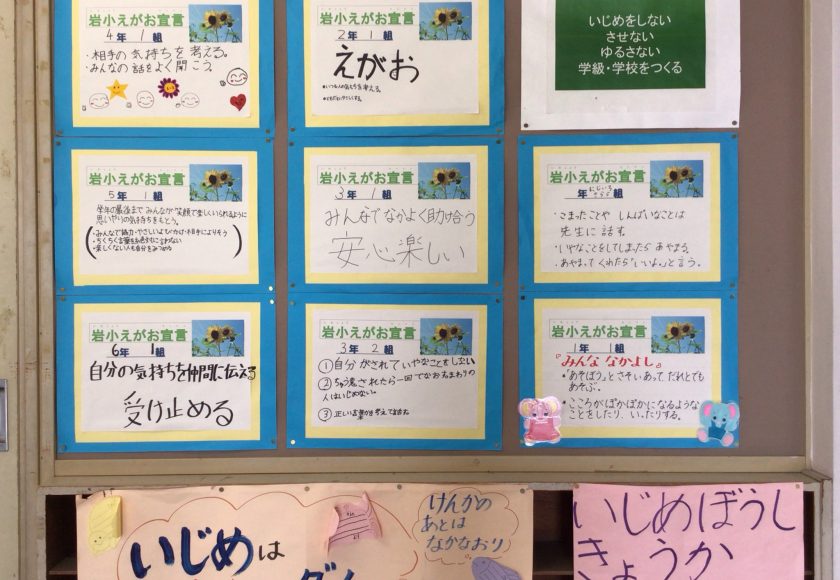 岩小えがお宣言
4年 1組
・相手の気持ちを考える。
・みんなの話をよく聞こう。
岩小えがお宣言
2年 1組
えがお
いじめをしない
させない
ゆるさない
学級・学校をつくる
岩小えがお宣言
5年 1組
学年の最後までみんなが笑顔で楽しくいられるように
思いやりの気持ちをもとう。
・みんなで協力・やさしいよびかけ・相手によりそう
・ちくちく言葉を絶対に言わない
・楽しくない人も自分をみつめる
岩小えがお宣言
3年 1組
みんなでなかよく助け合う
安心楽しい
岩小えがお宣言
年 組
・こまったことや しんぱいなことは
先生に話す
・いやなことをしてしまったら あやまる。
・あやまってくれたら「いいよ。」と言う。
岩小えがお宣言
6年 1組
自分の気持ちを仲間に伝える
受け止める
岩小えがお宣言
3年 2組
①自分がされていやなことをしない
②ちゅう意されたら一回でなおしまわりの
人はいじめない。
③正しい言葉かを考えて話す。
岩小えがお宣言
1年 1組
『みんな なかよし』
・「あそぼう」とさそいあって、だれとでも
あそぶ。
・こころがぽかぽかになるような
ことをしたり、いったりする。
いじめは
けんかの
あとは
なかなおり
いじめぼうし
きょうか